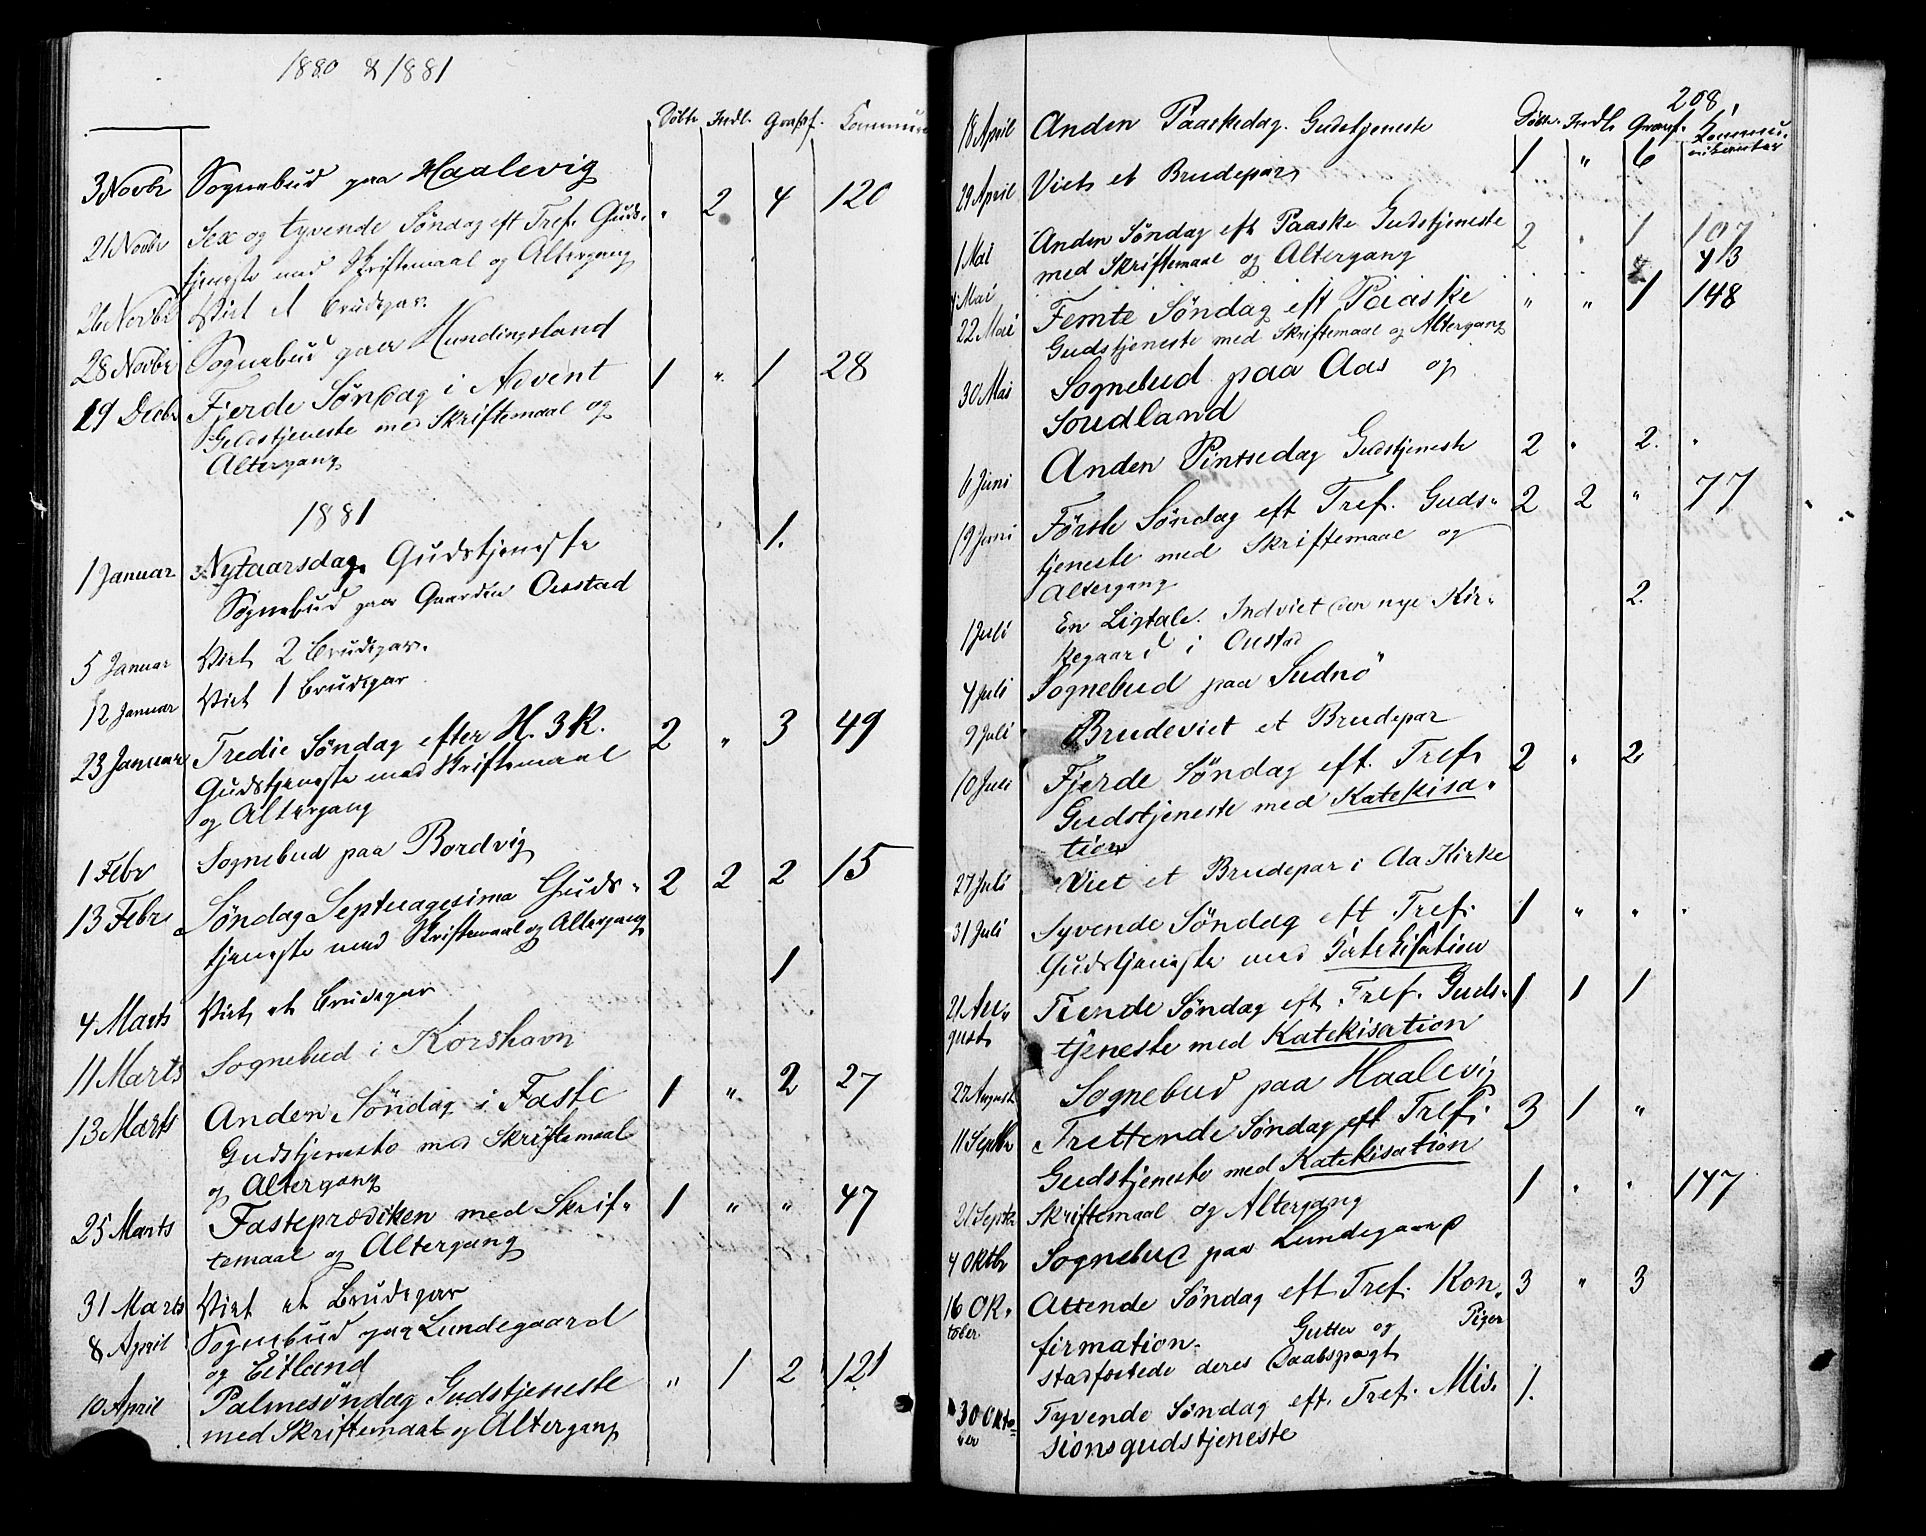 1880 & 1881
Døbte Indl. Grafsf. Kommuni
3 Novbr Sognebud paa Haalevig
21 Novbr Sex og tyvende Søndag eft Tref. Guds- " 2 4 120
tjeneste med Skriftemaal og Altergang
26 Novbr Viet et Brudepar.
28 Novbr Sognebud paa Hundingsland
19 Decbr Fjerde Søndag i Advent 1 " 1 28
Gudstjeneste med Skriftemaal og
Altergang
1881
1 Januar Nytaarsdag. Gudstjeneste 1.
Sognebud paa Gaarden
5 Januar Viet 2 Brudepar.
12 Januar Viet 1 Brudepar
23 Januar Tredie Søndag efter H. 3 K. 2 " 3 49
Gudstjeneste med Skriftemaal
og Altergang
1 Febr Sognebud paa Bordvig
13 Febr Søndag Septuagesima Guds- 2 2 2 15
tjeneste med Skriftemaal og Altergang
1
4 Marts Viet et Brudepar
11 Marts Sognebud i Korshavn
13 Marts Anden Søndag i Faste 1 " 2 27
Gudstjeneste med Skriftemaal
og Altergang
25 Marts Fasteprædiken med Skrif- 1 " " 47
temaal og Altergang
31 Marts Viet et Brudepar
8 April Sognebud paa Lundegaard
og Eitland
10 April Palmesøndag Gudstjeneste " 1 2 121
med Skriftemaal og Altergang
208.
Døbte. Indl. Grafsf. Kommu-
nikanter
18 April Anden Paaskedag. Gudstjeneste 1 " 6
29 April Viet et Brudepar
1 Mai Anden Søndag eft Paaske Gudstjeneste 2 " 1 107
med Skriftemaal og Altergang 43
Mai
22 Mai Femte Søndag eft Paaske " " 1 148
Gudstjeneste med Skriftemaal og Altergang
30 Mai Sognebud paa Aas og
Soudland
6 Juni Anden Pintsedag Gudstjeneste 2 " 2. "
19 Juni Første Søndag eft Tref. Guds- 2 2 " 77
tjeneste med Skriftemaal og
Altergang
1 Juli En Ligtale. Indviet den nye Kir- 2.
kegaard i Oustad
4 Juli Sognebud paa
9 Juli Brudeviet et Brudepar
10 Juli Fjerde Søndag eft. Tref. 2 " 2
Gudstjeneste med Katekisa-
tion
27 Juli Viet et Brudepar i Aa Kirke
31 Juli Syvende Søndag eft Tref. 1 " " "
Gudstjeneste med Katekisation
21 Au- Tiende Søndag eft. Tref. Guds- 1 1 1
gust tjeneste med Katekisation
27 August Sognebud paa Haalevig
11 Septbr Trettende Søndag eft Tref. 3 1 "
Gudstjeneste med Katekisation
21 Septbr Skriftemaal og Altergang 1 " " 147
4 Oktbr Sognebud paa Lundegaard
16 Ok- Attende Søndag eft Tref. Kon- 3 " 3
tober. firmation. Gutter og Piger
stadfæstede deres Daabspagt
30 Okto- Tyvende Søndag eft. Tref. Mis- 1.
ber sionsgudstjeneste